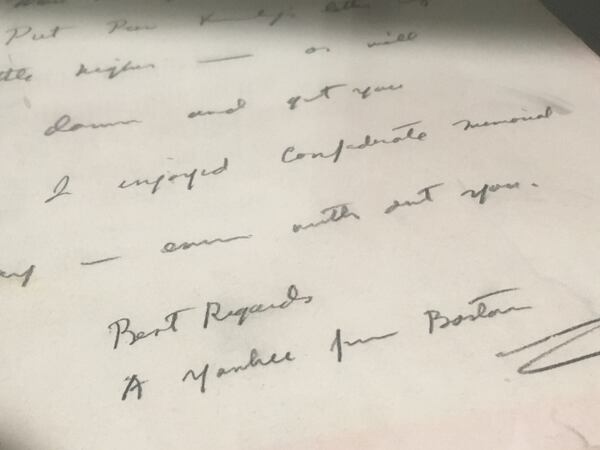 Put Pear
higher — or will
down and get you
I enjoyed Confederate memorial
— even without you.
Best Regards
A Yankee from Boston